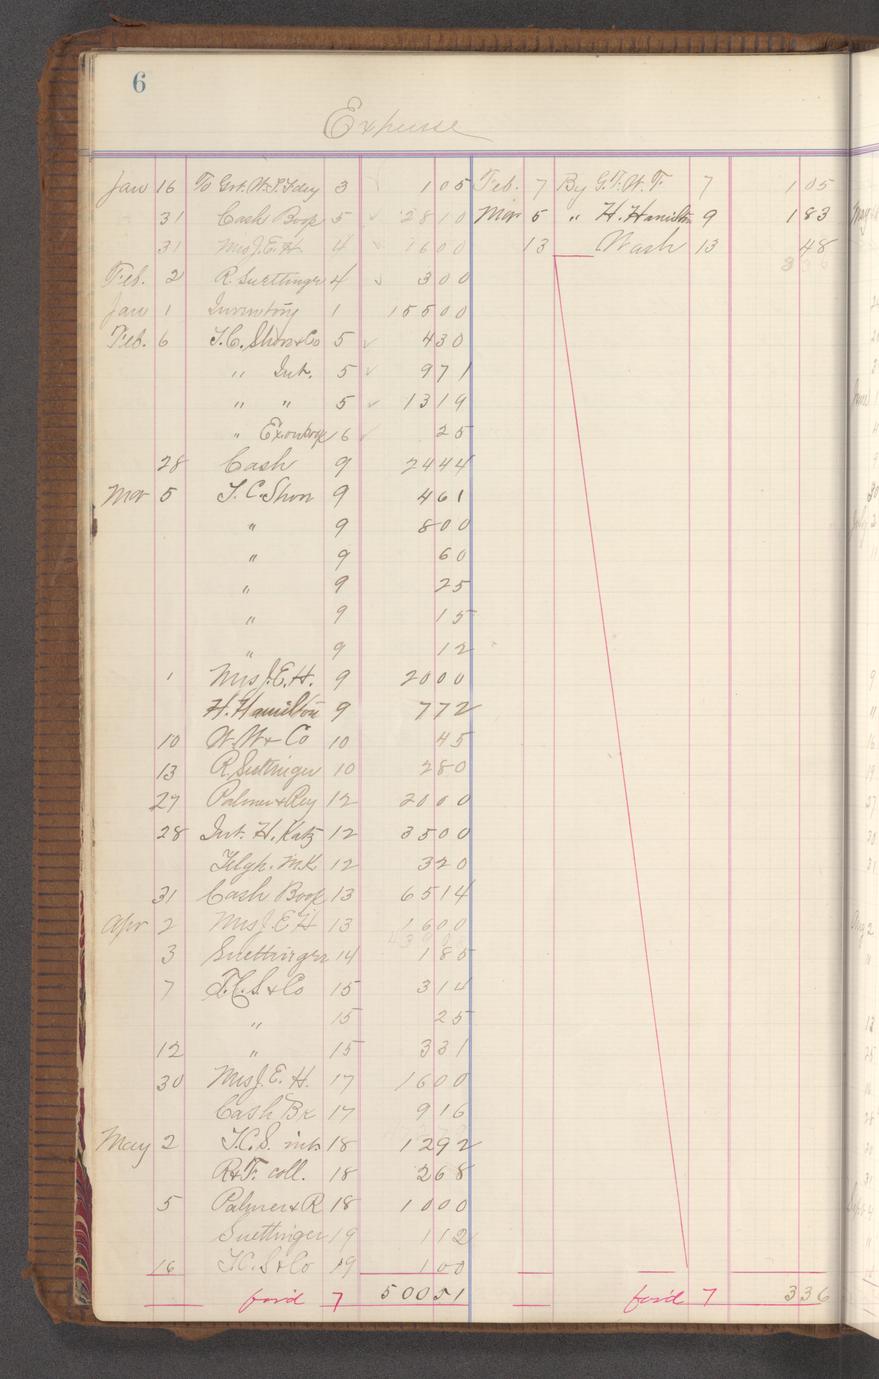 6
Expense
Jan 16 To Grt. W. P. Fdry 3 1 05 Feb. 7 By G. T. W. F. 7 1 05
31 Cash Book 5 ✓ 28 10 Mar 5 " H. Hamilton 9 1 83
31 Mrs J. E. H. 4 ✓ 16 00 13 Wash 13 48
Feb. 2 R. Suettinger 4 ✓ 3 00 3 36
Jan 1 Inventory 1 155 00
Feb. 6 T. C. Shon & Co 5 ✓ 4 30
" Int. 5 ✓ 9 71
" " 5 ✓ 13 19
" 6 ✓ 25
28 Cash 9 24 44
Mar 5 T. C. Shon 9 4 61
" 9 8 00
" 9 60
" 9 25
" 9 15
" 9 12
1 Mrs J. E. H. 9 20 00
H. Hamilton 9 7 72
10 W. W & Co 10 45
13 R. Suettinger 10 2 80
27 Palmer & Rey 12 20 00
28 Int. H. Katz 12 35 00
Telgh. M. K. 12 3 20
31 Cash Book 13 65 14
Apr 2 Mrs J. E. H 13 16 00
3 Suettinger 14 1 85
7 T. C. S. & Co 15 3 14
" 15 25
12 " 15 3 31
30 Mrs J. E. H. 17 16 00
Cash Bk 17 9 16
May 2 T. C. S. int. 18 12 92
R & F. coll. 18 2 68
5 Palmer & R 18 10 00
Suettinger 19 1 12
16 T. C. S & Co 19 1 00
for'd 7 500 51 for'd 7 3 36